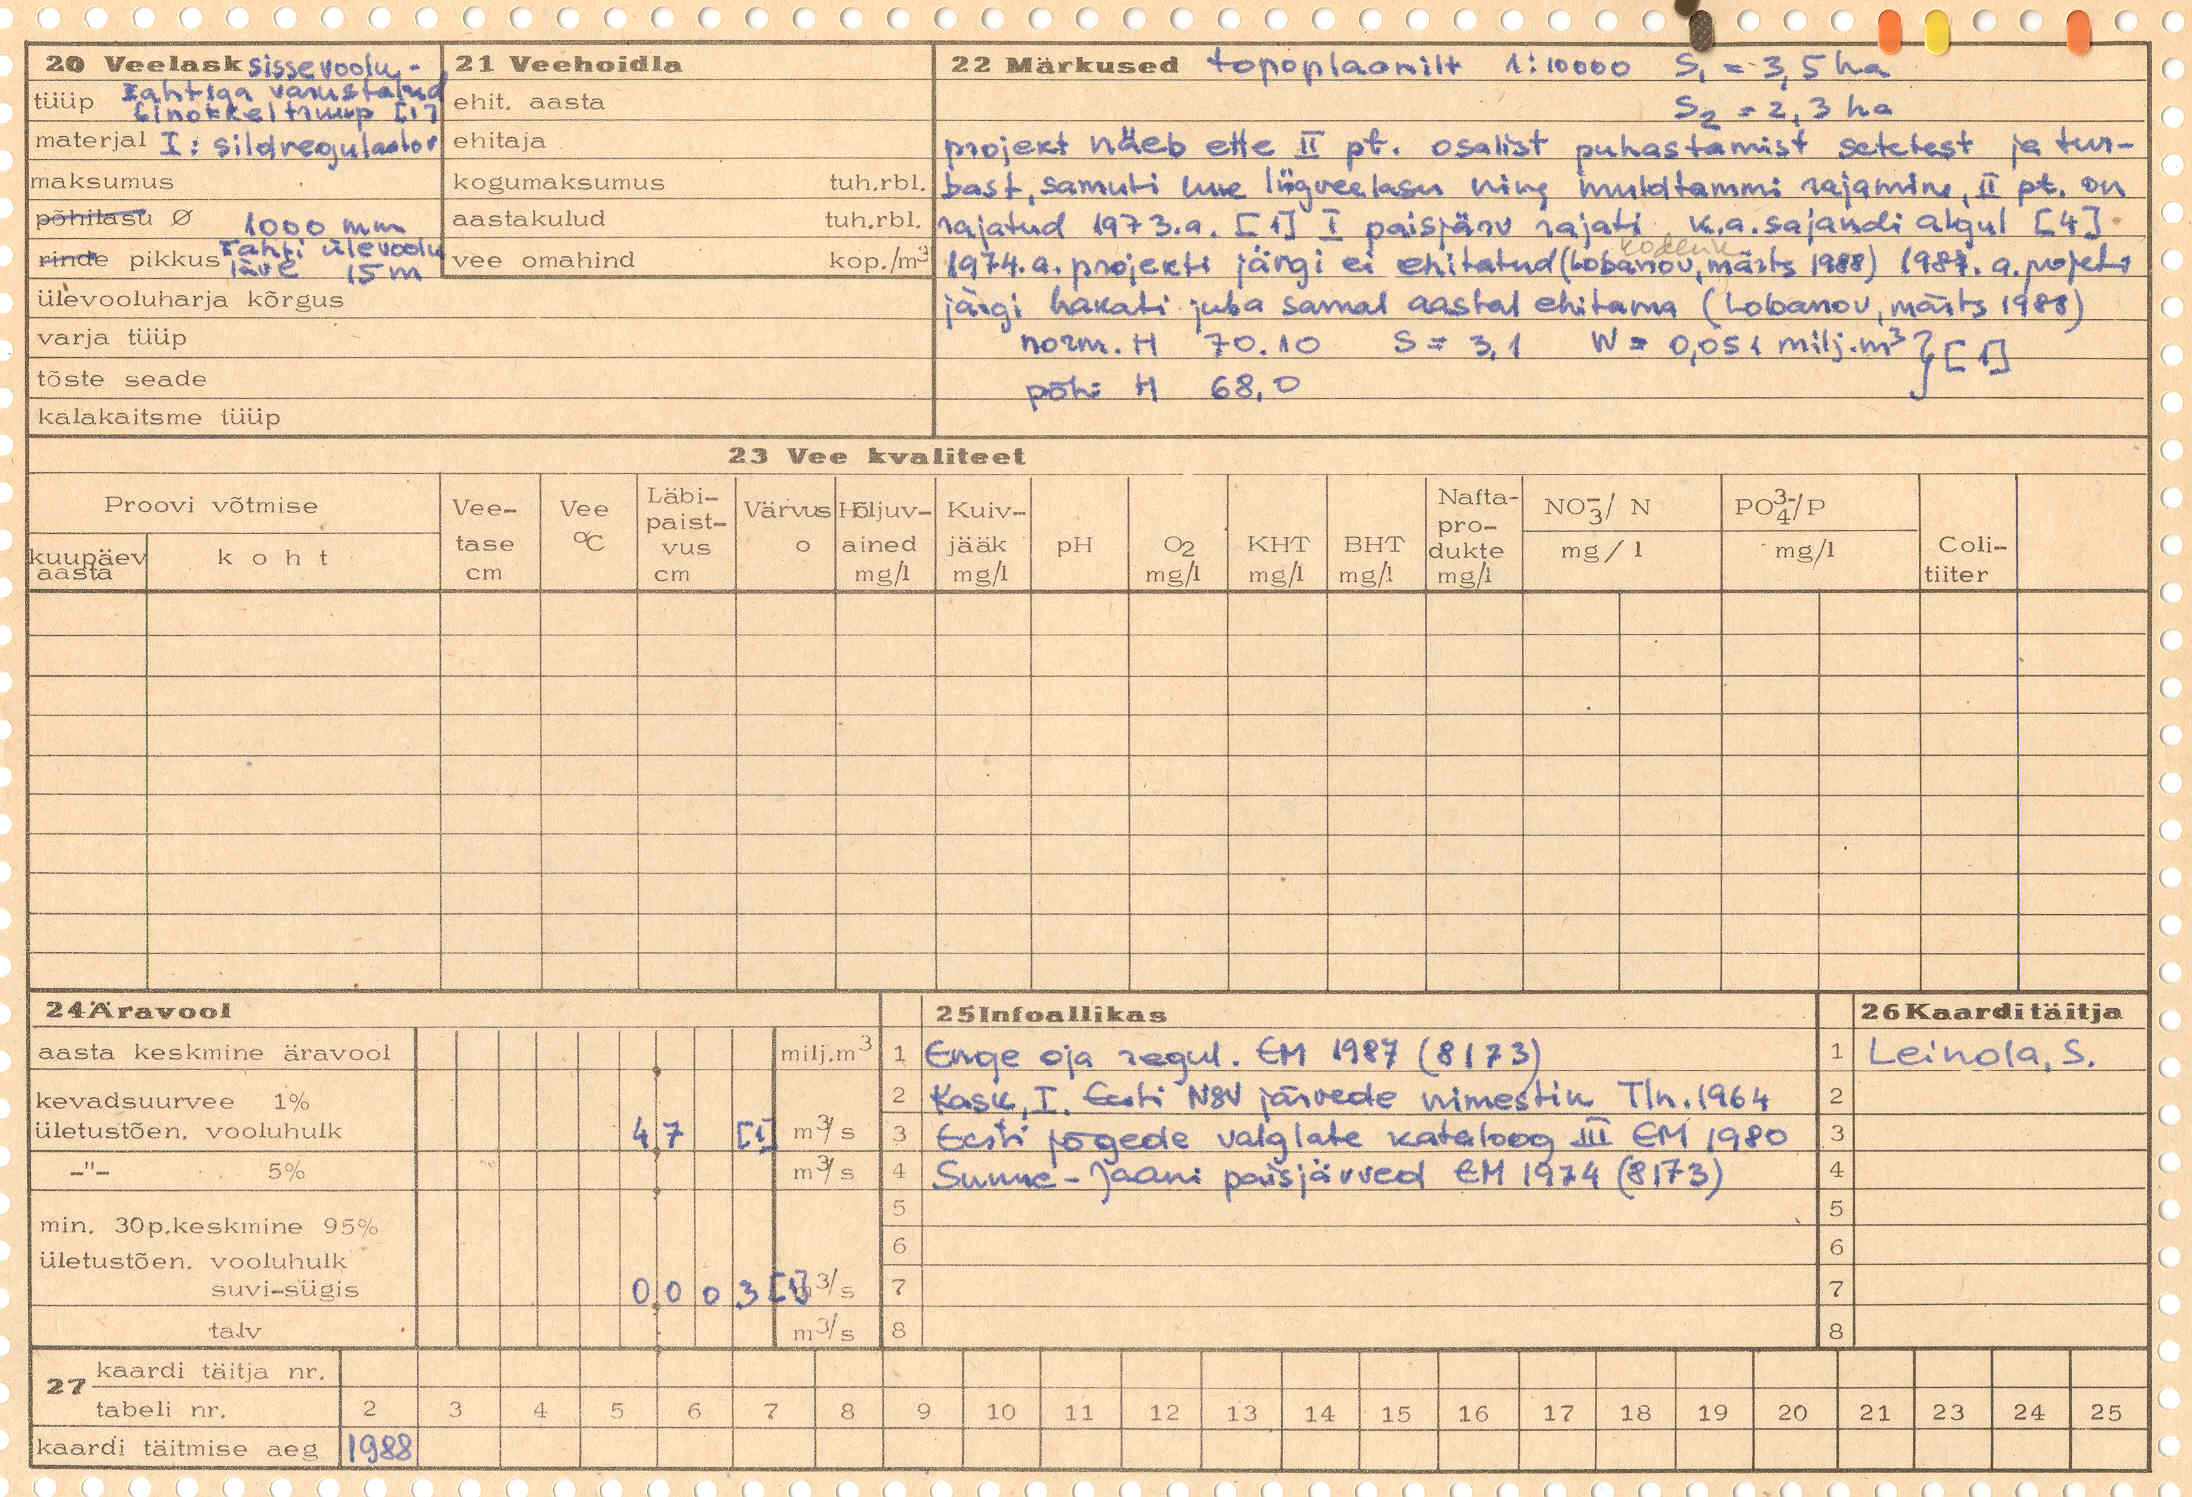 20 Veelask sissevoolu-
tüüp šahtiga varustatud
Ginokkeltruup [1]
materjal I: sildregulaator
maksumus
põhilasu Ø 1000 mm
rinde pikkus šahti ülevoolu
läve 15 m
ülevooluharja kõrgus
varja tüüp
tõste seade
kalakaitsme tüüp
21 Veehoidla
ehit. aasta
ehitaja
kogumaksumus tuh.rbl.
aastakulud tuh.rbl.
vee omahind kop./m³
22 Märkused topoplaanilt 1:10000 S₁ = 3,5 ha
S₂ = 2,3 ha
projekt näeb ette II pt. osalist puhastamist setetest ja tur-
bast, samuti uue liigveelasu ning muldtammi rajamine, II pt. on
rajatud 1973.a. [1] I paisjärv rajati k.a. sajandi algul [4]
1974.a. projekti järgi ei ehitatud (Lobanov, märts 1988) 1987.a. projekti
järgi hakati juba samal aastal ehitama (Lobanov, märts 1988)
norm. H 70.10 S = 3,1 W = 0,051 milj.m³ } [1]
põhi H 68,0
23 Vee kvaliteet
Proovi võtmise
kuupäev aasta
koht
Vee-tase cm
Vee °C
Läbi-paist-vus cm
Värvus o
Hõljuv-ained mg/l
Kuiv-jääk mg/l
pH
O₂ mg/l
KHT mg/l
BHT mg/l
Nafta-pro-dukte mg/l
NO₃⁻/ N mg/l
PO₄³⁻/P mg/l
Coli-tiiter
24 Äravool
aasta keskmine äravool milj.m³
kevadsuurvee 1%
ületustõen. vooluhulk 47 [1] m³/s
-"- 5% m³/s
min. 30p.keskmine 95%
ületustõen. vooluhulk
suvi-sügis 0 0 0 3 [1] m³/s
talv m³/s
25 Infoallikas
1 Enge oja regul. EM 1987 (8173)
2 Kask, I. Eesti NSV järvede nimestik Tln. 1964
3 Eesti jõgede valglate kataloog III EM 1980
4 Suure-Jaani paisjärved EM 1974 (8173)
5
6
7
8
26 Kaarditäitja
1 Leinola, S.
2
3
4
5
6
7
8
27 kaardi täitja nr.
tabeli nr. 2 3 4 5 6 7 8 9 10 11 12 13 14 15 16 17 18 19 20 21 23 24 25
kaardi täitmise aeg 1988